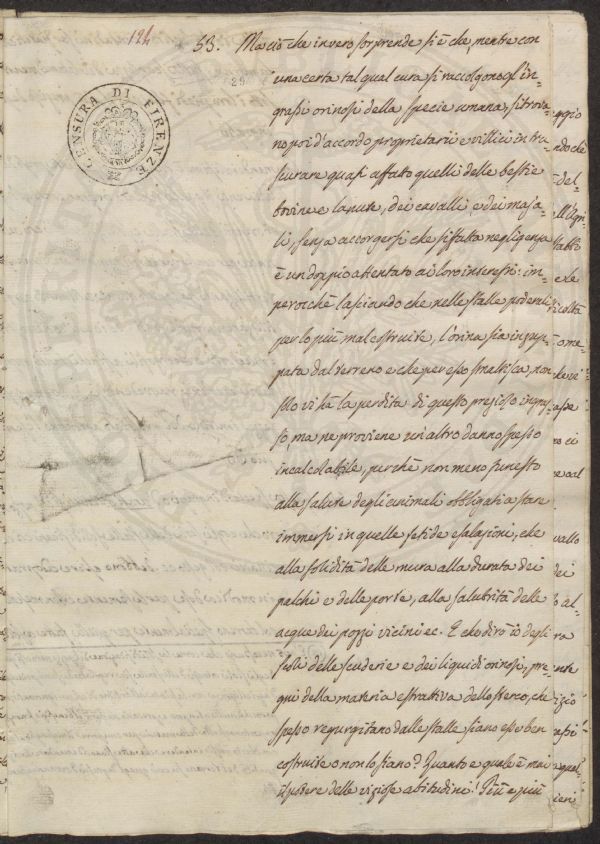 124
53. Ma ciò che in vero sorprende si è che, mentre con
29
una certa tal qual cura si raccolgono gl'in-
grassi orinosi della specie umana, si trova-
no poi d'accordo proprietarii e villici in tra-
scurare quasi affato quelli delle bestie
bovine e lanute, dei cavalli, e dei maja-
li, senza accorgersi che siffatta negligenza
è un doppio attentato ai loro interessi: im-
perocchè lasciando che nelle stalle poderali
per lo più mal costruite, l'orina sia inzup-
pata dal terreno e che per esso smaltisca, non
solo vi ha la perdita di questo prezioso ingras-
so, ma ne proviene un altro danno spesso
incalcolabile, perchè non meno funesto
alla salute degli animali obbligati a stare
immersi in quelle fetide esalazioni, che
alla solidità delle mura alla durata dei
palchi e delle porte, alla salubrità delle
acque dei pozzi vicini ec. E che dirò io degli
scoli delle scuderie e dei liquidi orinosi, pre-
gni della materia estrattiva dello sterco, che
spesso regurgitano dalle stalle siano esse ben
costruite o non lo siano? Quanto e quale è mai
il potere delle viziose abitudini! Più e più
CENSURA DI FIRENZE